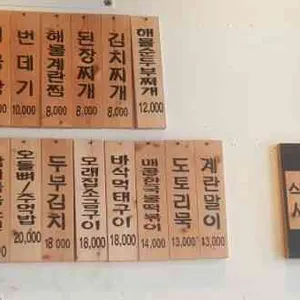 번데기
10,000
해물계란찜
8,000
된장찌개
8,000
김치찌개
8,000
해물순두부찌개
12,000
오돌뼈/주먹밥
20,000
두부김치
18,000
모래집소금구이
18,000
바삭먹태구이
18,000
매콤한국물떡볶이
14,000
도토리묵
13,000
계란말이
13,000